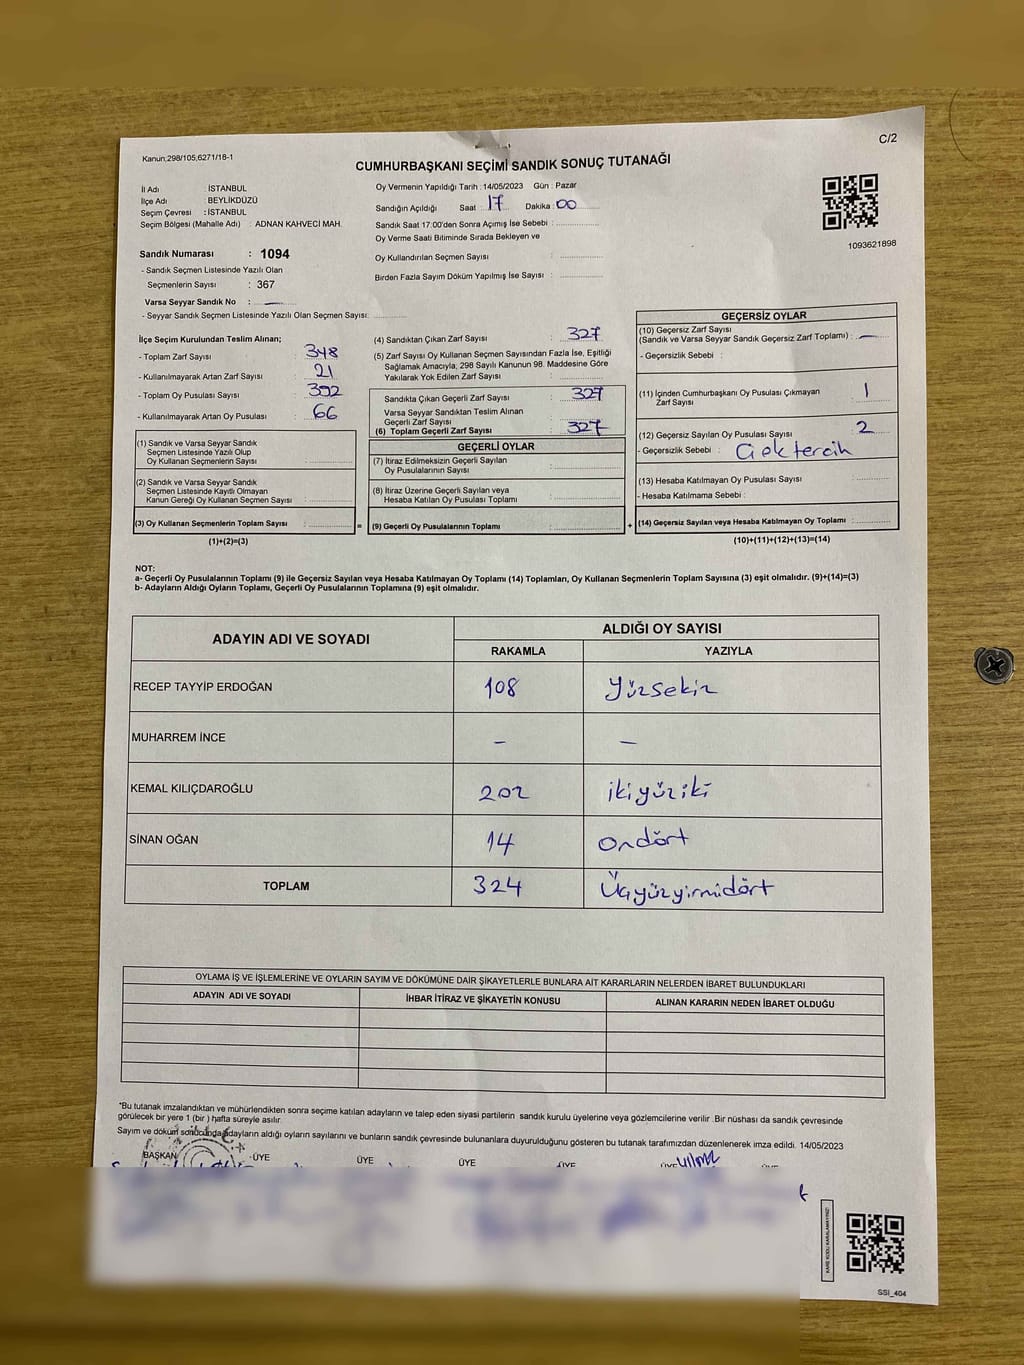 Kanun;298/105;6271/18-1
C/2
CUMHURBAŞKANI SEÇİMİ SANDIK SONUÇ TUTANAĞI
İl Adı : İSTANBUL
İlçe Adı : BEYLİKDÜZÜ
Seçim Çevresi : İSTANBUL
Seçim Bölgesi (Mahalle Adı) : ADNAN KAHVECİ MAH.
Sandık Numarası : 1094
- Sandık Seçmen Listesinde Yazılı Olan
Seçmenlerin Sayısı : 367
Varsa Seyyar Sandık No : —
- Seyyar Sandık Seçmen Listesinde Yazılı Olan Seçmen Sayısı:
Oy Vermenin Yapıldığı Tarih : 14/05/2023 Gün : Pazar
Sandığın Açıldığı Saat : 17 Dakika : 00
Sandık Saat 17:00'den Sonra Açımış İse Sebebi :
Oy Verme Saati Bitiminde Sırada Bekleyen ve
Oy Kullandırılan Seçmen Sayısı :
Birden Fazla Sayım Döküm Yapılmış İse Sayısı :
1093621898
İlçe Seçim Kurulundan Teslim Alınan;
- Toplam Zarf Sayısı : 348
- Kullanılmayarak Artan Zarf Sayısı : 21
- Toplam Oy Pusulası Sayısı : 392
- Kullanılmayarak Artan Oy Pusulası : 66
(1) Sandık ve Varsa Seyyar Sandık
Seçmen Listesinde Yazılı Olup
Oy Kullanan Seçmenlerin Sayısı :
(2) Sandık ve Varsa Seyyar Sandık
Seçmen Listesinde Kayıtlı Olmayan
Kanun Gereği Oy Kullanan Seçmen Sayısı :
(3) Oy Kullanan Seçmenlerin Toplam Sayısı : =
(1)+(2)=(3)
(4) Sandıktan Çıkan Zarf Sayısı : 327
(5) Zarf Sayısı Oy Kullanan Seçmen Sayısından Fazla İse, Eşitliği
Sağlamak Amacıyla, 298 Sayılı Kanunun 98. Maddesine Göre
Yakılarak Yok Edilen Zarf Sayısı :
Sandıkta Çıkan Geçerli Zarf Sayısı : 327
Varsa Seyyar Sandıktan Teslim Alınan
Geçerli Zarf Sayısı :
(6) Toplam Geçerli Zarf Sayısı : 327
GEÇERLİ OYLAR
(7) İtiraz Edilmeksizin Geçerli Sayılan
Oy Pusulalarının Sayısı :
(8) İtiraz Üzerine Geçerli Sayılan veya
Hesaba Katılan Oy Pusulası Toplamı :
(9) Geçerli Oy Pusulalarının Toplamı : +
GEÇERSİZ OYLAR
(10) Geçersiz Zarf Sayısı
(Sandık ve Varsa Seyyar Sandık Geçersiz Zarf Toplamı) : —
- Geçersizlik Sebebi :
(11) İçinden Cumhurbaşkanı Oy Pusulası Çıkmayan
Zarf Sayısı : 1
(12) Geçersiz Sayılan Oy Pusulası Sayısı : 2
- Geçersizlik Sebebi : Çok tercih
(13) Hesaba Katılmayan Oy Pusulası Sayısı :
- Hesaba Katılmama Sebebi :
(14) Geçersiz Sayılan veya Hesaba Katılmayan Oy Toplamı :
(10)+(11)+(12)+(13)=(14)
NOT:
a- Geçerli Oy Pusulalarının Toplamı (9) ile Geçersiz Sayılan veya Hesaba Katılmayan Oy Toplamı (14) Toplamları, Oy Kullanan Seçmenlerin Toplam Sayısına (3) eşit olmalıdır. (9)+(14)=(3)
b- Adayların Aldığı Oyların Toplamı, Geçerli Oy Pusulalarının Toplamına (9) eşit olmalıdır.
ADAYIN ADI VE SOYADI ALDIĞI OY SAYISI
RAKAMLA YAZIYLA
RECEP TAYYİP ERDOĞAN 108 Yüzsekiz
MUHARREM İNCE – –
KEMAL KILIÇDAROĞLU 202 ikiyüziki
SİNAN OĞAN 14 Ondört
TOPLAM 324 Üçyüzyirmidört
OYLAMA İŞ VE İŞLEMLERİNE VE OYLARIN SAYIM VE DÖKÜMÜNE DAİR ŞİKAYETLERLE BUNLARA AİT KARARLARIN NELERDEN İBARET BULUNDUKLARI
ADAYIN ADI VE SOYADI İHBAR İTİRAZ VE ŞİKAYETİN KONUSU ALINAN KARARIN NEDEN İBARET OLDUĞU
*Bu tutanak imzalandıktan ve mühürlendikten sonra seçime katılan adayların ve talep eden siyasi partilerin sandık kurulu üyelerine veya gözlemcilerine verilir .Bir nüshası da sandık çevresinde
görülecek bir yere 1 (bir ) hafta süreyle asılır.
Sayım ve döküm sonucunda adayların aldığı oyların sayılarını ve bunların sandık çevresinde bulunanlara duyurulduğunu gösteren bu tutanak tarafımızdan düzenlenerek imza edildi. 14/05/2023
BAŞKAN ÜYE ÜYE ÜYE ÜYE ÜYE ÜYE
KARE KODU KARALAMAYINIZ!
SSI_404